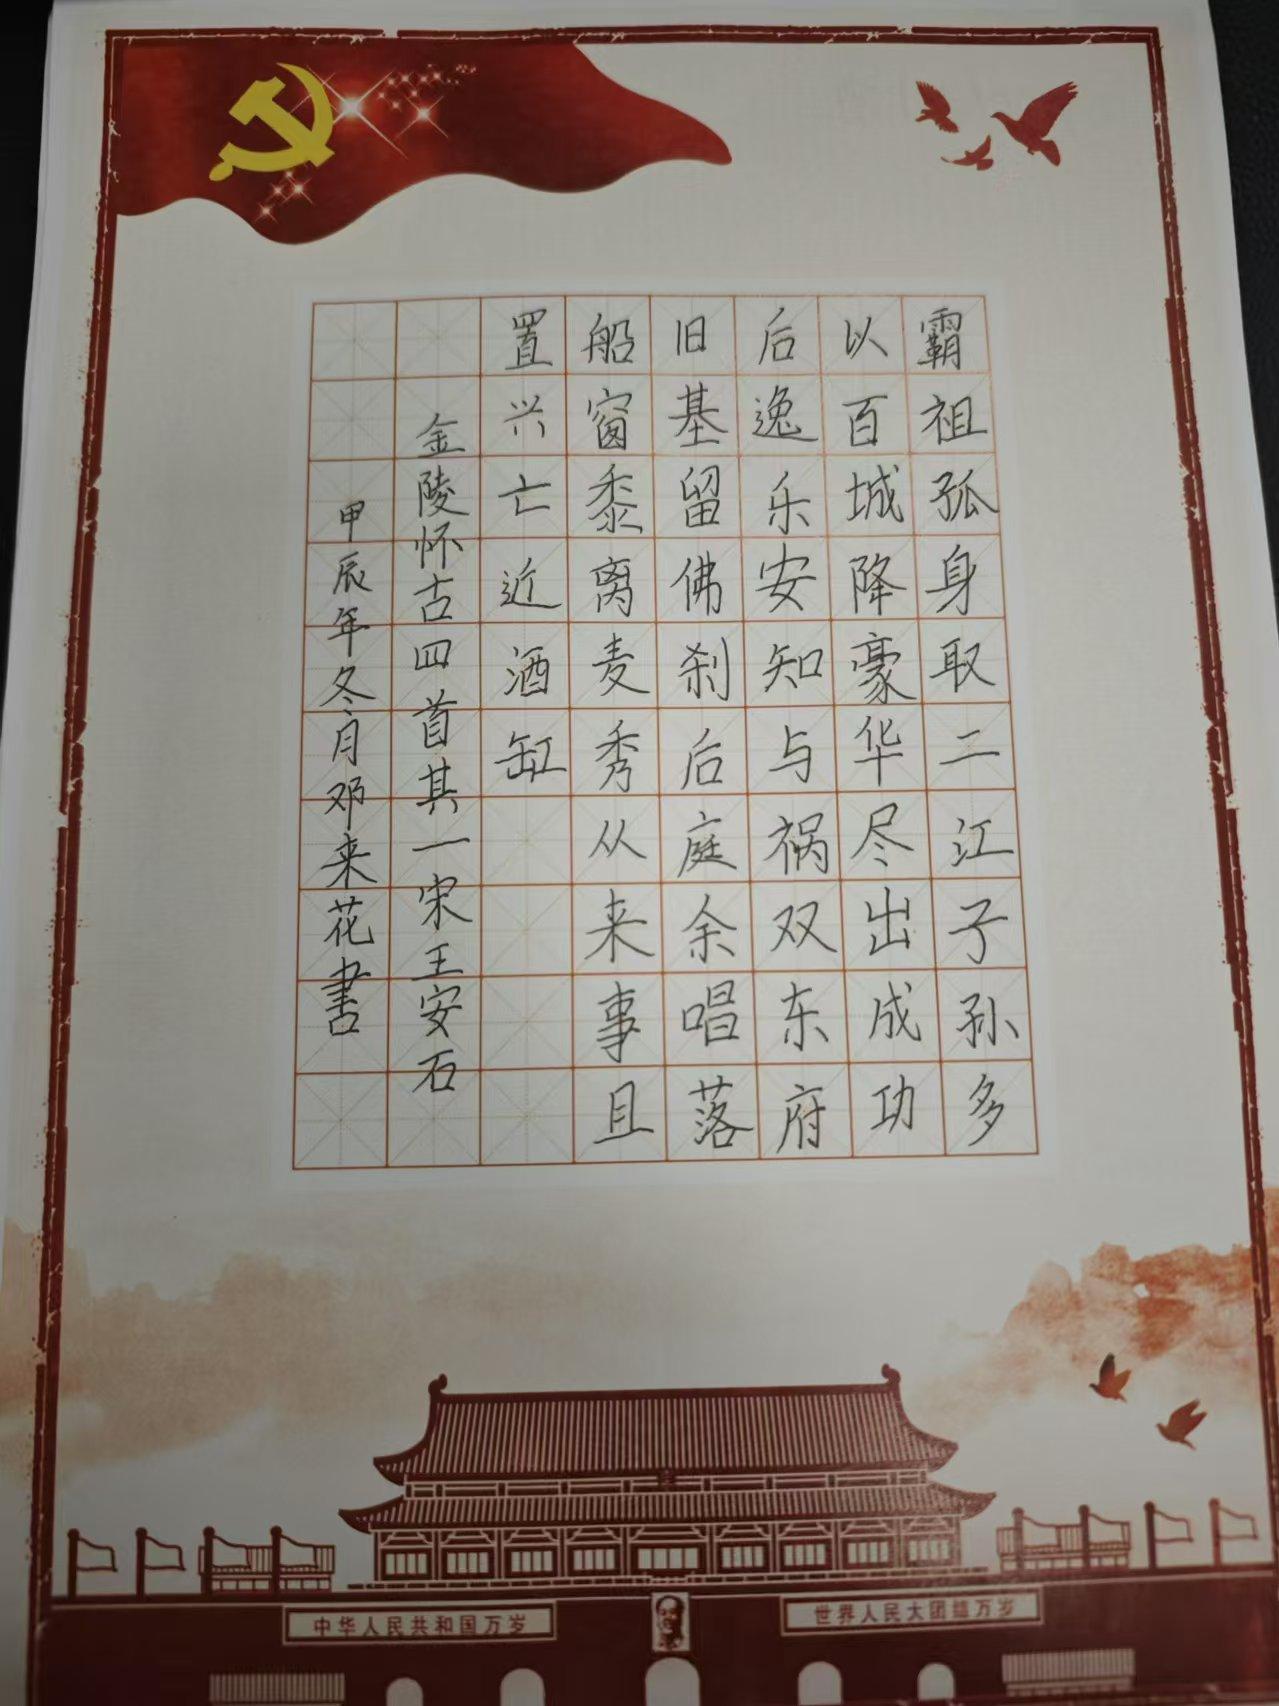 霸祖孤身取二江子孙多
以百城降豪华尽出成功
后逸乐安知与祸双东府
旧基留佛刹后庭余唱落
船窗黍离麦秀从来事且
置兴亡近酒缸
金陵怀古四首其一宋王安石
甲辰年冬月邓来花書
中华人民共和国万岁
世界人民大团结万岁